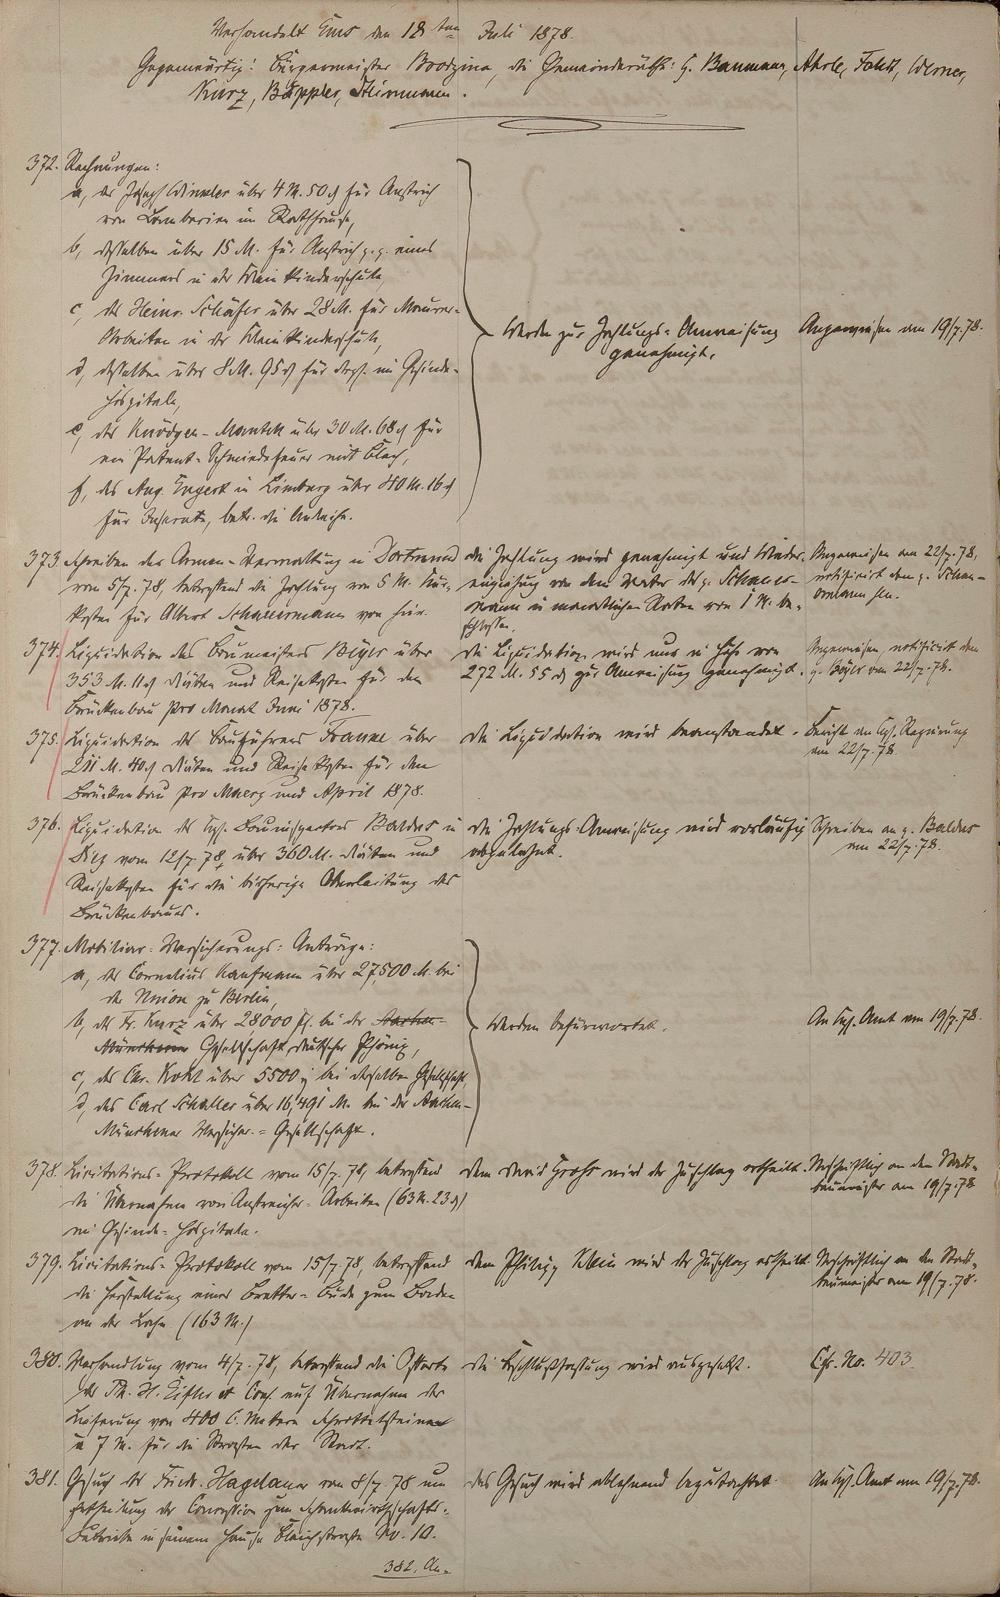 Verhandelt Ems den 18ten Juli 1878.
Gegenwärtig: Bürgermeister Boodzina, die Gemeinderäthe: G. Baumann, Ahrle, Foldt, Werner,
Kurz, Bäppler, Steinmann.
372. Rechnungen:
a, des Joseph Winkler über 4 M. 50 ₰ für Anstrich
von Lamberien im Rathhause,
b, desselben über 15 M. für Anstrich p.p. eines
Zimmers in der Kleinkinderschule,
c, des Heinr. Schäfer über 28 M. für Maurer-
Arbeiten in der Kleinkinderschule,
d, desselben über 8 M. 95 ₰ für desgl. im Gesinde-
Hospitale,
e, des Knödgen-Mantell über 30 M. 68 ₰ für
ein Patent-Schmiedefeuer mit Blech,
f, des Aug. Engert in Limburg über 40 M. 16 ₰
für Inserate, betr. die Anleihe.
Werden zur Zahlungs-Anweisung
genehmigt.
Angewiesen am 19/7. 78.
373. Schreiben der Armen-Verwaltung in Dortmund
vom 5/7. 78, betreffend die Zahlung von 5 M. Kur-
kosten für Albert Schauermann von hier.
die Zahlung wird genehmigt und Wieder-
einziehung von dem Vater des p. Schauer-
mann in monatlichen Raten von 1 M. be-
schlossen.
Angewiesen am 22/7. 78,
notificirt dem p. Schau-
ermann sen.
374. Liquidation des Baumeisters Beyer über
353 M. 11 ₰ Diäten und Reisekosten für den
Brückenbau pro Monat Juni 1878.
die Liquidation wird nur in Höhe von
272 M. 55 ₰ zur Anweisung genehmigt.
Angewiesen, notificirt dem
p. Beyer am 22/7. 78.
375. Liquidation des Bauführers Franke über
211 M. 40 ₰ Diäten und Reisekosten für den
Brückenbau pro Maerz und April 1878.
die Liquidation wird beanstandet.
Bericht an Kgl. Regierung
am 22/7. 78
376. Liquidation des Kgl. Bauinspectors Baldus in
Diez vom 12/7. 78, über 360 M. Diäten und
Reisekosten für die bisherige Oberleitung des
Brückenbaues.
die Zahlungs-Anweisung wird vorläufig
abgelehnt.
Schreiben an p. Baldus
am 22/7. 78.
377. Mobiliar-Versicherungs-Anträge:
a, des Cornelius Kaufmann über 27,500 M. bei
der Union zu Berlin,
b, des Fr. Kurz über 28000 fl. bei der Aachen-
Münchener Gesellschaft, deutscher Phönix,
c, des Chr. Kohl über 5500 " bei derselben Gesellschaft,
d, des Carl Schaller über 16,491 M. bei der Aachen-
Münchener Versicher.-Gesellschaft.
Werden befürwortet.
An Kgl. Amt am 19/7. 78.
378. Licitations-Protokoll vom 15/7. 78, betreffend
die Übernahme von Anstreicher-Arbeiten (63 M. 23 ₰)
im Gesinde-Hospitale.
dem David Grohs wird der Zuschlag ertheilt.
Abschriftlich an den Stadt-
baumeister am 19/7. 78
379. Licitations-Protokoll vom 15/7. 78, betreffend
die Herstellung einer Bretter-Bude zum Baden
an der Lahn (163 M.)
dem Philipp Klein wird der Zuschlag ertheilt.
Abschriftlich an den Stadt-
baumeister am 19/7. 78.
380. Verhandlung vom 4/7. 78, betreffend die Offerte
des Th. H. Eifler et Cons. auf Übernahme der
Lieferung von 400 C. Metern Schrottelsteinen
à 7 M. für die Strassen der Stadt.
die Beschlußfassung wird ausgesetzt.
Cfr. No. 403.
381. Gesuch des Friedr. Hagelauer vom 8/7. 78 um
Ertheilung der Concession zum Schankwirthschafts-
Betriebe in seinem Hause Bleichstrasse No. 10.
das Gesuch wird ablehnend begutachtet.
An Kgl. Amt am 19/7. 78.
382. An-